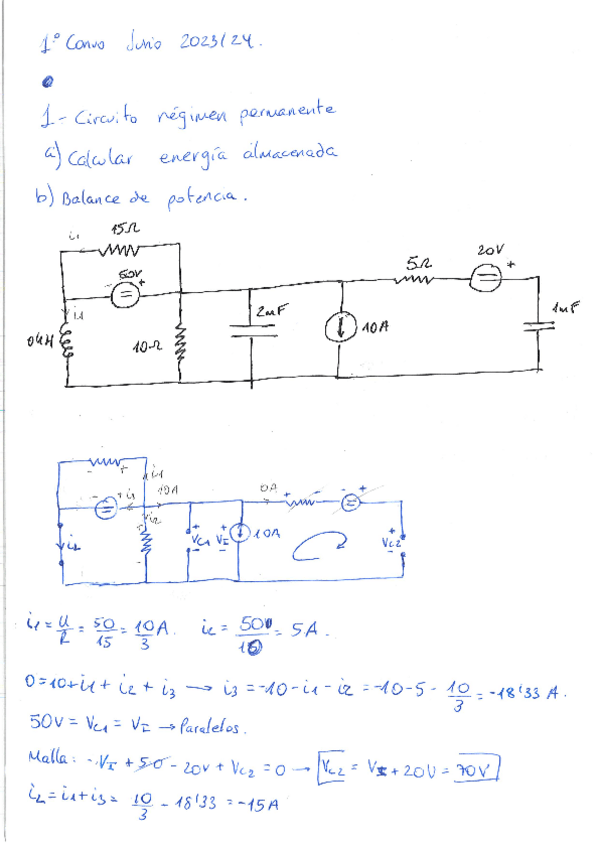 1º Convo Junio 2023/24.
1- Circuito régimen permanente
a) Calcular energía almacenada
b) Balance de potencia.
i1 15Ω
50V +
i1
0'4H
10Ω
2mF
10A
5Ω
20V
+
1mF
- + i1
- + i3 10A 0A + - - +
i2
iL
+ VC1 -
+ VI -
10A
+ VC2 -
i1 = U/R = 50/15 = 10/3 A. i2 = 50V/10 = 5A.
0=10+i1+i2+i3 → i3=-10-i1-i2=-10-5-10/3=-18'33 A.
50V = VC1 = VI → Paralelos.
Malla: -VI + 50 - 20V + VC2 = 0 → VC2 = VI + 20V = 70V
iL = i1+i3 = 10/3 - 18'33 = -15A